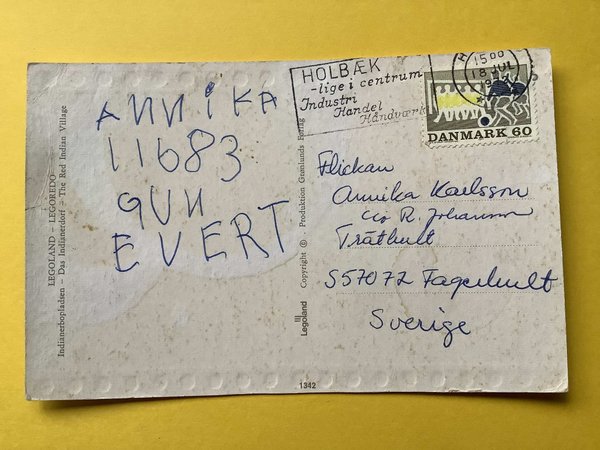 LEGOLAND - LEGOREDO
Indianerbopladsen - Das Indianerdorf - The Red Indian Village
ANNIKA
11683
GUN
EVERT
Legoland Copyright © . Produktion Grønlunds Forlag
1342
HOLBÆK
-lige i centrum
Industri
Handel
Håndværk
1500
18 JUL
DANMARK 60
Flickan
Annika Karlsson
c/o R. Johansson
Träthult
S57072 Fagerhult
Sverige